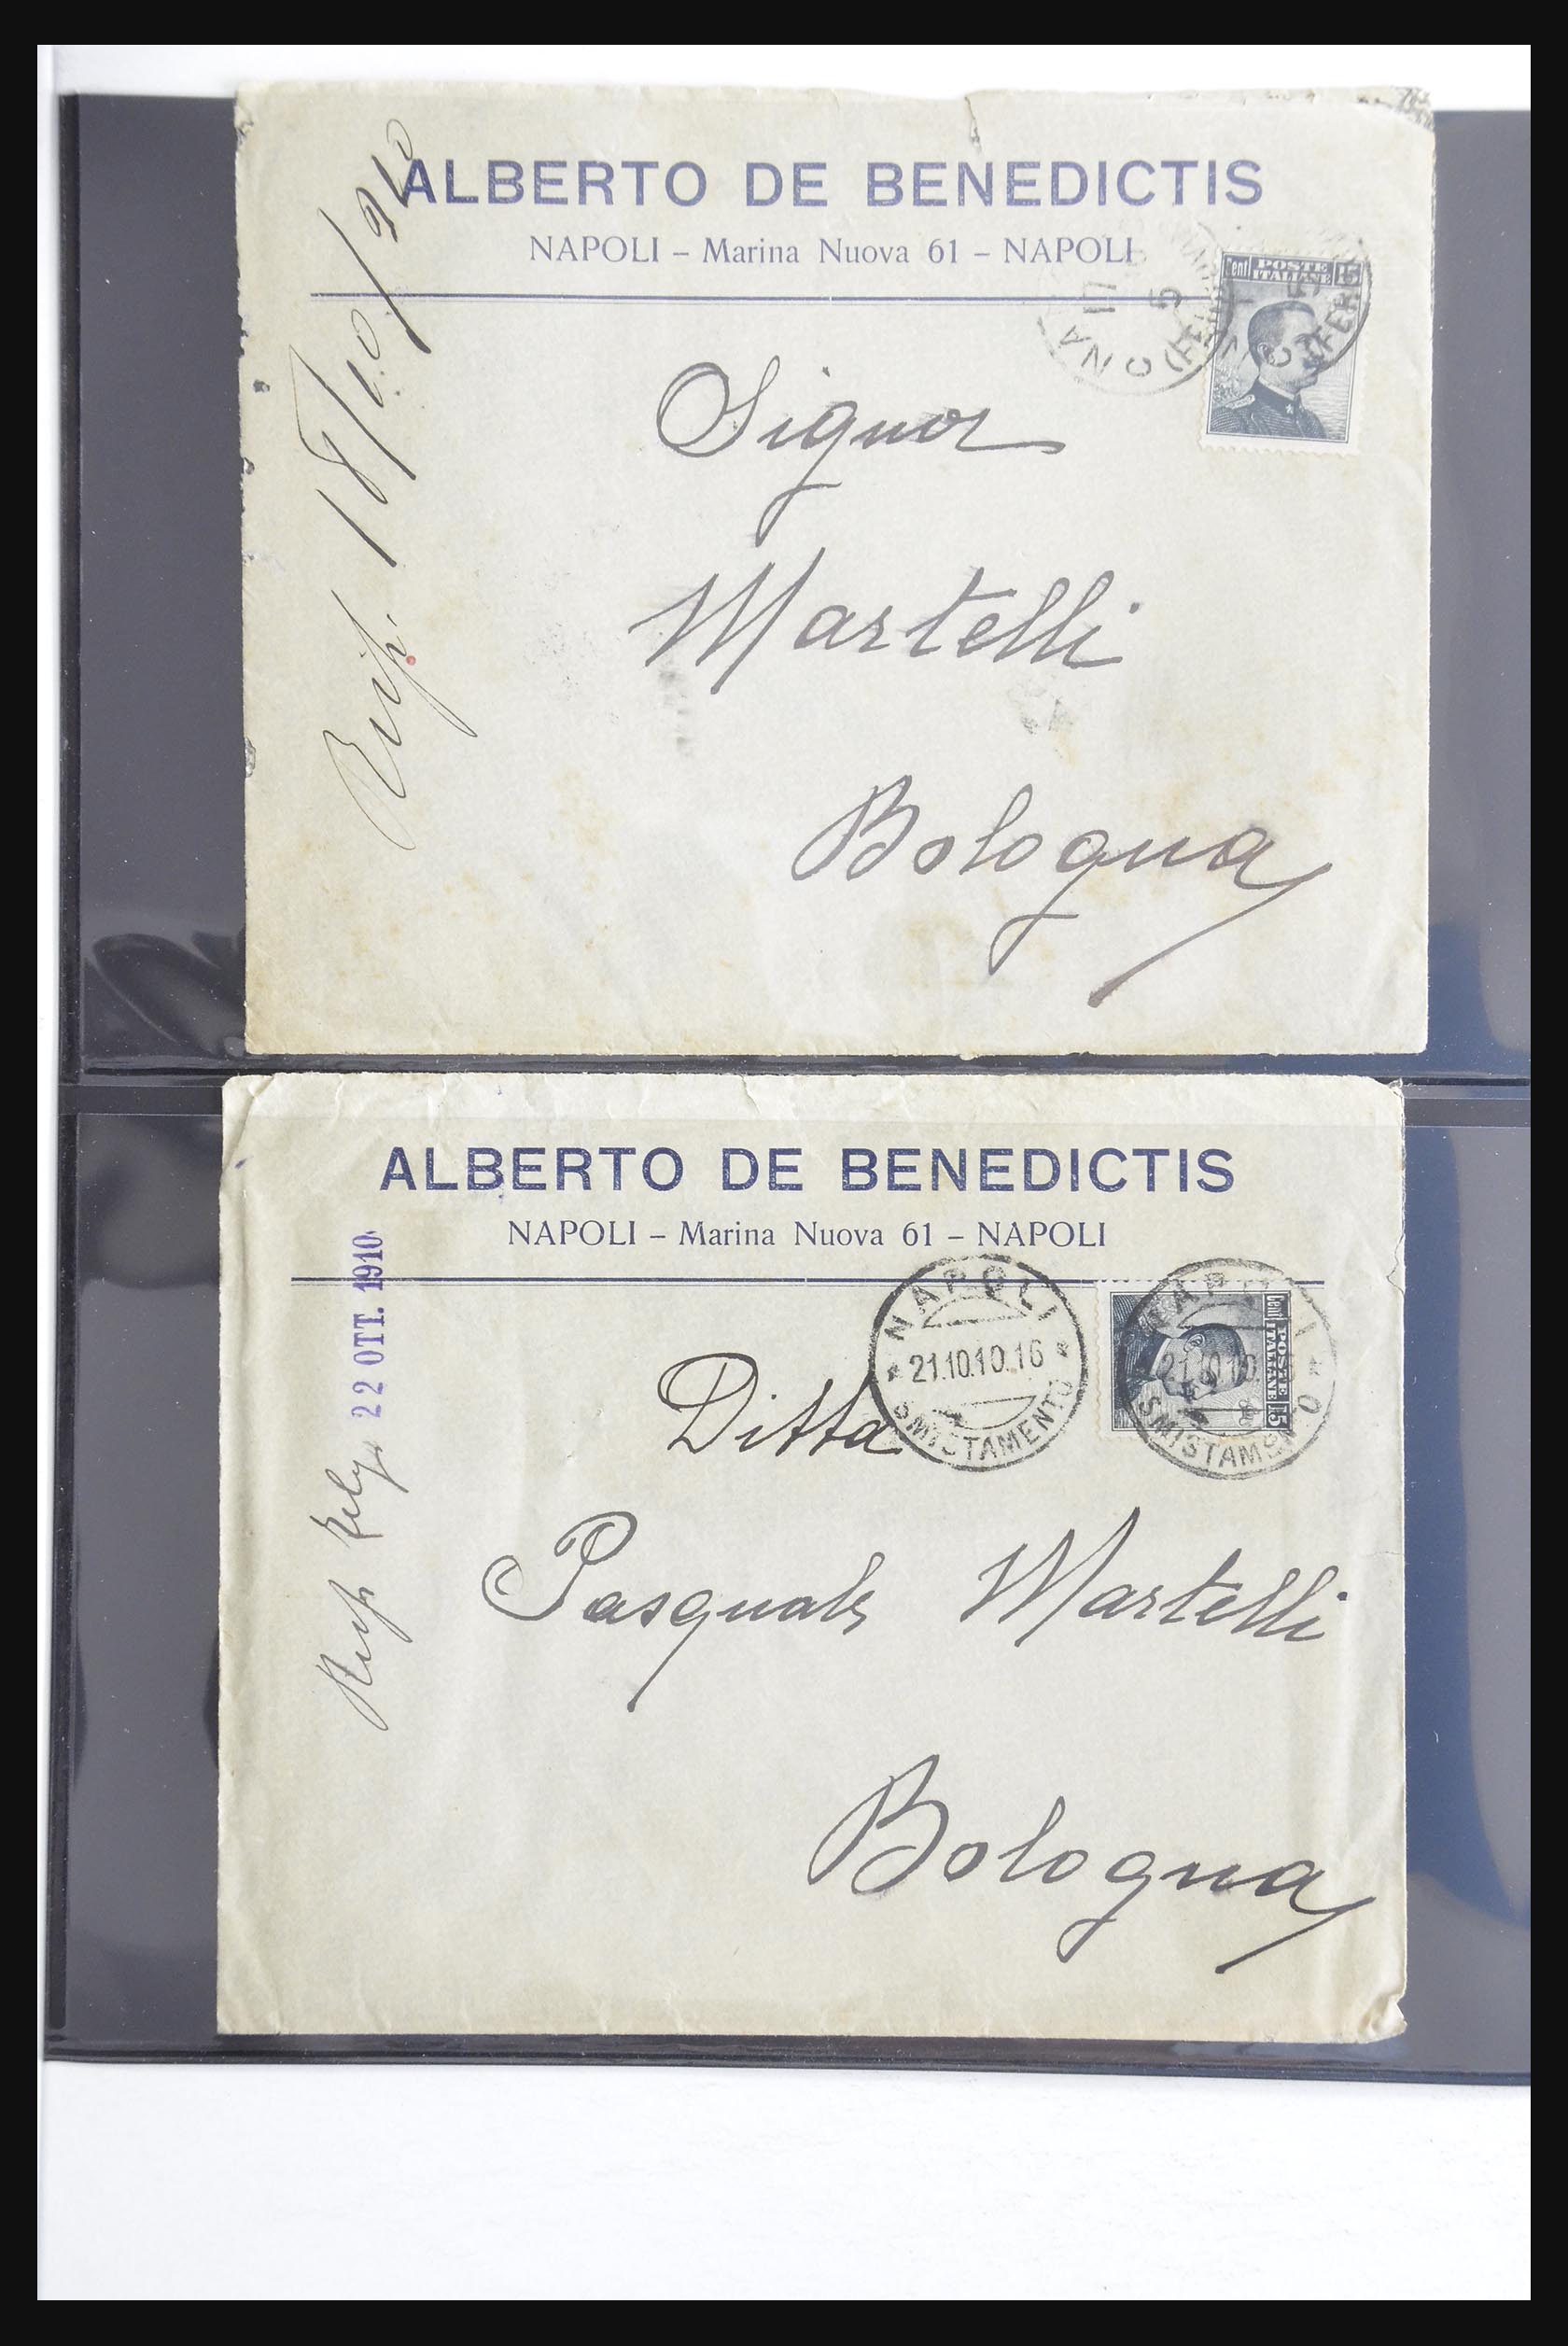 ALBERTO DE BENEDICTIS
NAPOLI – Marina Nuova 61 – NAPOLI
Cent POSTE ITALIANE 15
Signor
Martelli
Bologna
Risp. 18/10/910
ALBERTO DE BENEDICTIS
NAPOLI – Marina Nuova 61 – NAPOLI
NAPOLI
* 21.10.10.16 *
SMISTAMENTO
Cent POSTE ITALIANE 15
NAPOLI
21.10.10.
SMISTAMENTO
Ditta
Pasquale Martelli
Bologna
Risp 22 OTT. 1910